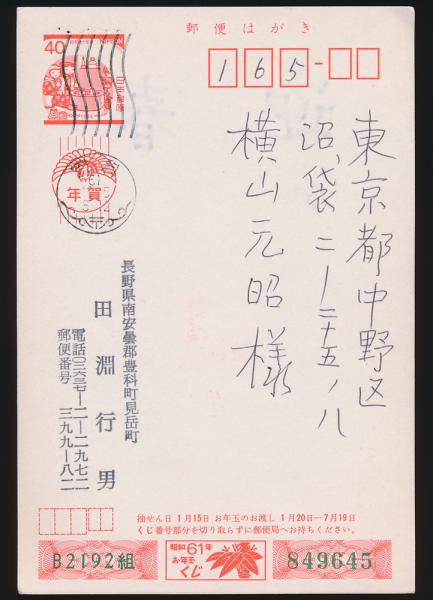 郵便はがき
165-
40
NIPPON
日本郵便
年賀
61
東京都中野区
沼袋二ー二十五ノ八
横山元昭様
長野県南安曇郡豊科町見岳町
田淵行男
電話〇二六三七ー二ー二九七二
郵便番号 三九九ー八二
抽せん日 1月15日 お年玉のお渡し 1月20日ー7月19日
くじ番号部分を切り取らずに郵便局へお持ちください。
B2192組
昭和61年
お年玉
くじ
849645